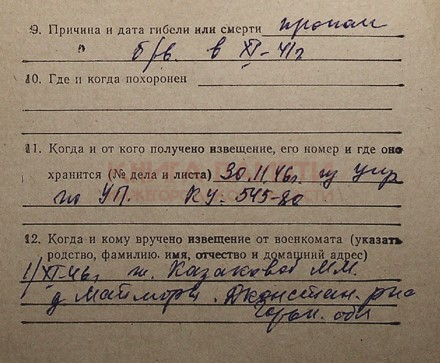 9. Причина и дата гибели или смерти пропал
б/в. в XI-41г
10. Где и когда похоронен
11. Когда и от кого получено извещение, его номер и где оно
хранится (№ дела и листа) 30.11.46г. из упр
по УП. КУ-545-80
12. Когда и кому вручено извещение от военкомата (указать
родство, фамилию, имя, отчество и домашний адрес)
1/XI-46г ж. Казаковой М.М.
д. Майморы. р-на
Горьк. обл